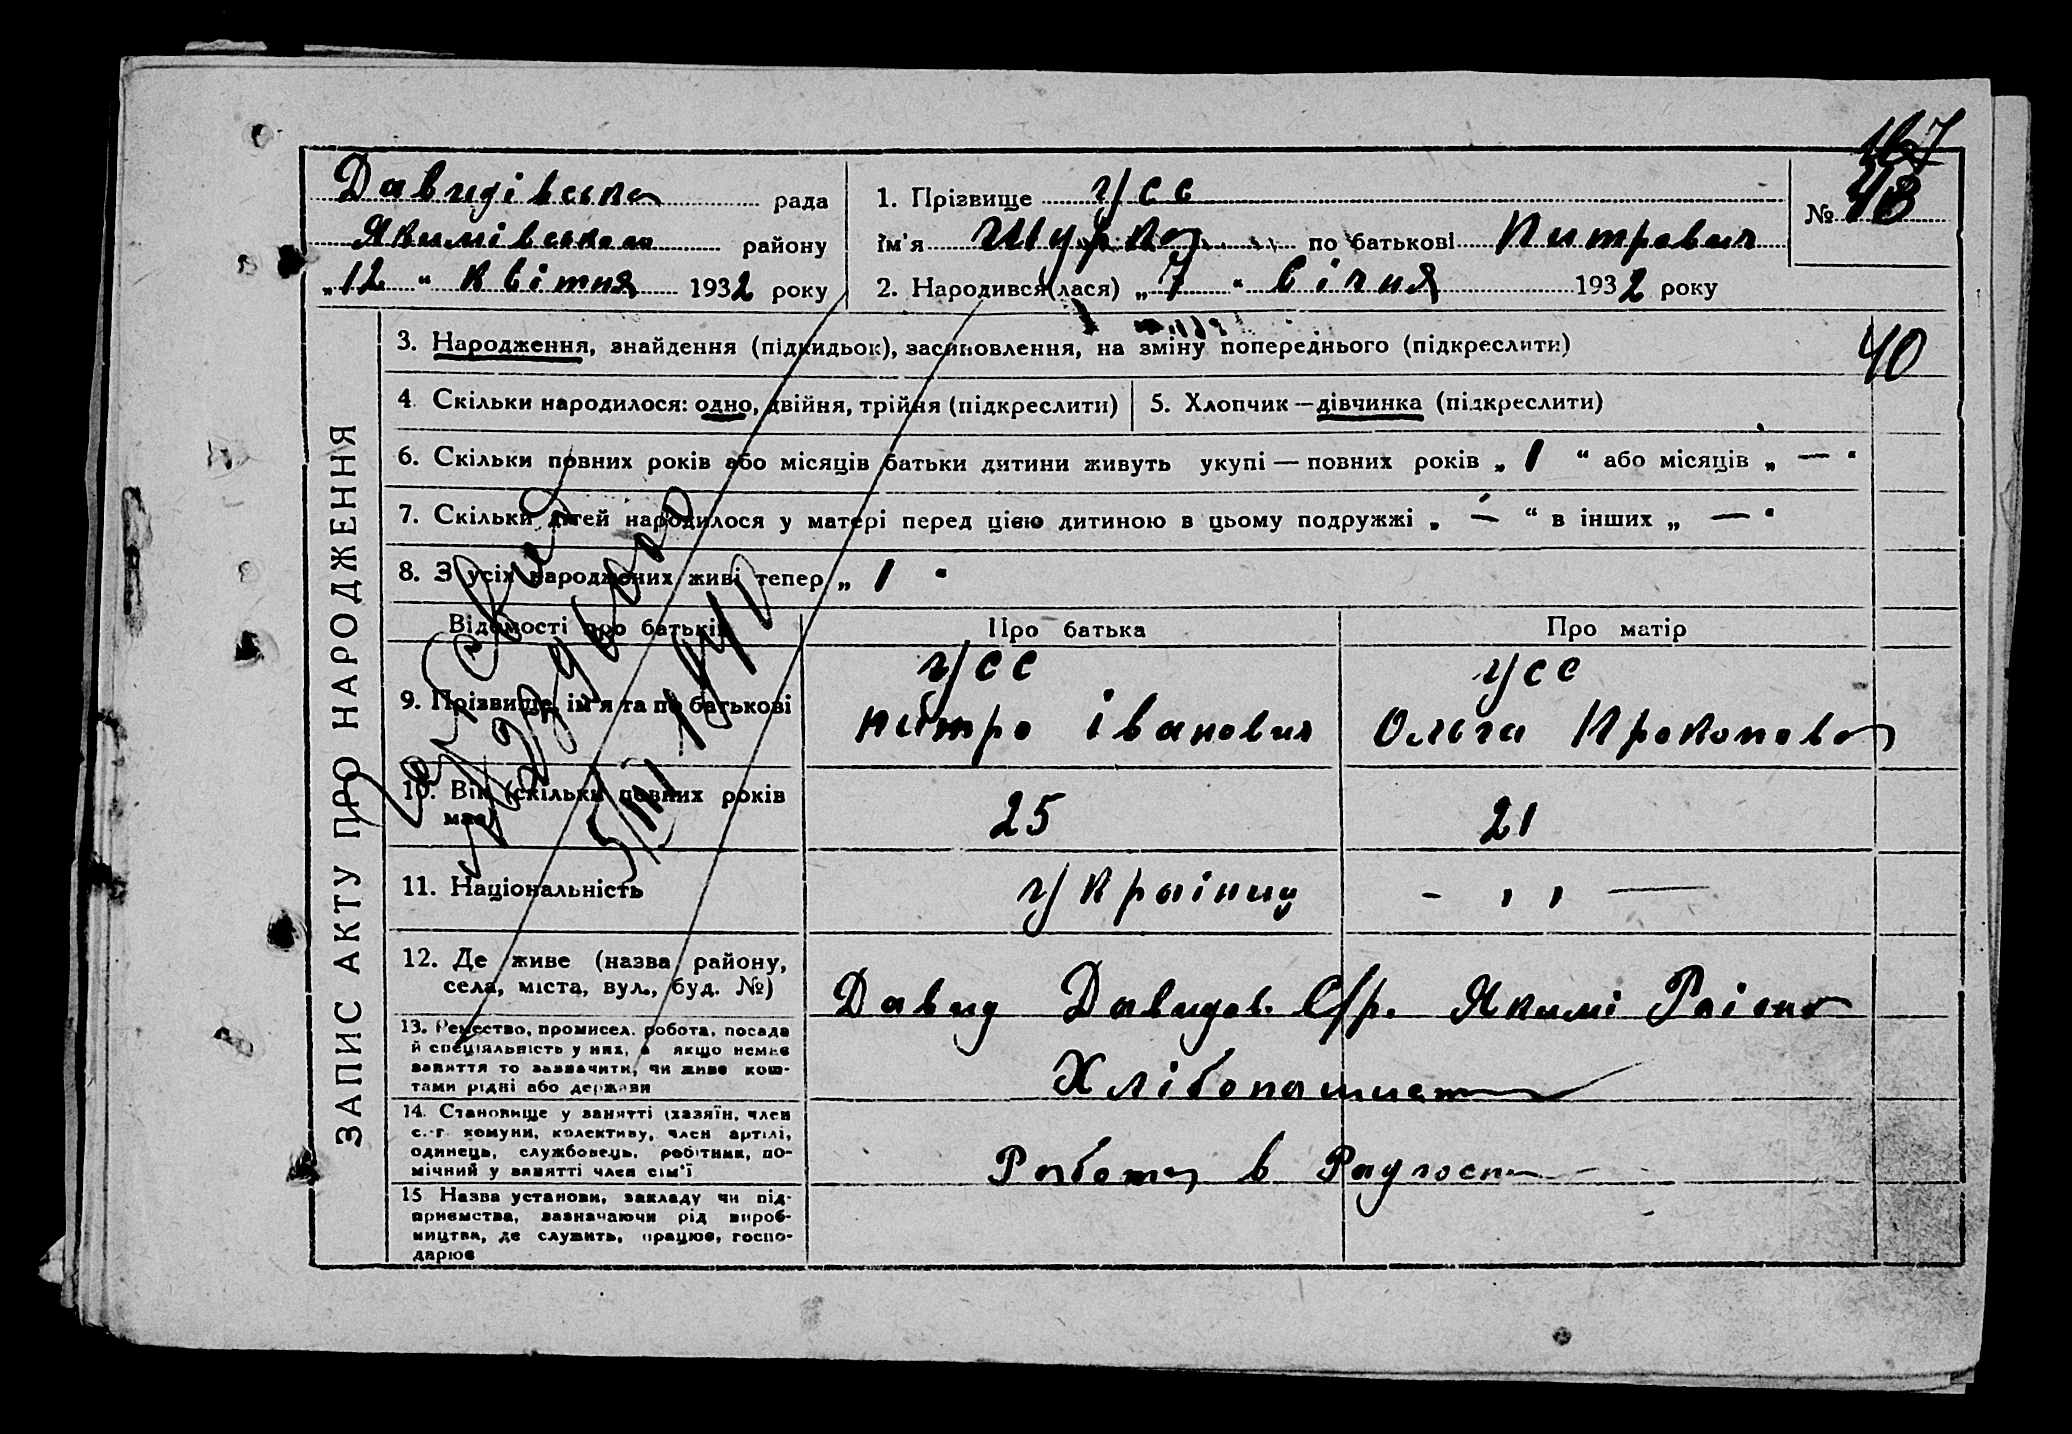 Давидівська рада
Якимівського району
„12“ квітня 1932 року
1. Прізвище Усс
ім'я Шурка по батькові Питрович
2. Народився(лася) „7“ січня 1932 року
№ 48
167
40
ЗАПИС АКТУ ПРО НАРОДЖЕННЯ
3. Народження, знайдення (підкидьок), засиновлення, на зміну попереднього (підкреслити)
4. Скільки народилося: одно, двійня, трійня (підкреслити)
5. Хлопчик — дівчинка (підкреслити)
6. Скільки повних років або місяців батьки дитини живуть укупі — повних років „1“ або місяців „—“
7. Скільки дітей народилося у матері перед цією дитиною в цьому подружжі „—“ в інших „—“
8. З усіх народжених живі тепер „1“
Відомості про батьків
Про батька
Про матір
9. Прізвище, ім'я та по батькові
Усс
Питро Іванович
Усс
Ольга Прокопова
10. Вік (скільки повних років має)
25
21
11. Національність
Украінец
- ,, —
12. Де живе (назва району, села, міста, вул., буд. №)
Давид Давидов. С/р. Якимі Раіона
13. Ремество, промисел, робота, посада й спеціяльність у них, а якщо немає заняття то зазначити, чи живе коштами рідні або держави
Хлібопашист
14. Становище у занятті (хазяїн, член с.-г. комуни, колективу, член артілі, одинець, службовець, робітник, помічний у занятті член сім'ї
Работа в Радгоспі
15 Назва установи, закладу чи підприємства, зазначаючи рід виробництва, де служить, працює, господарює